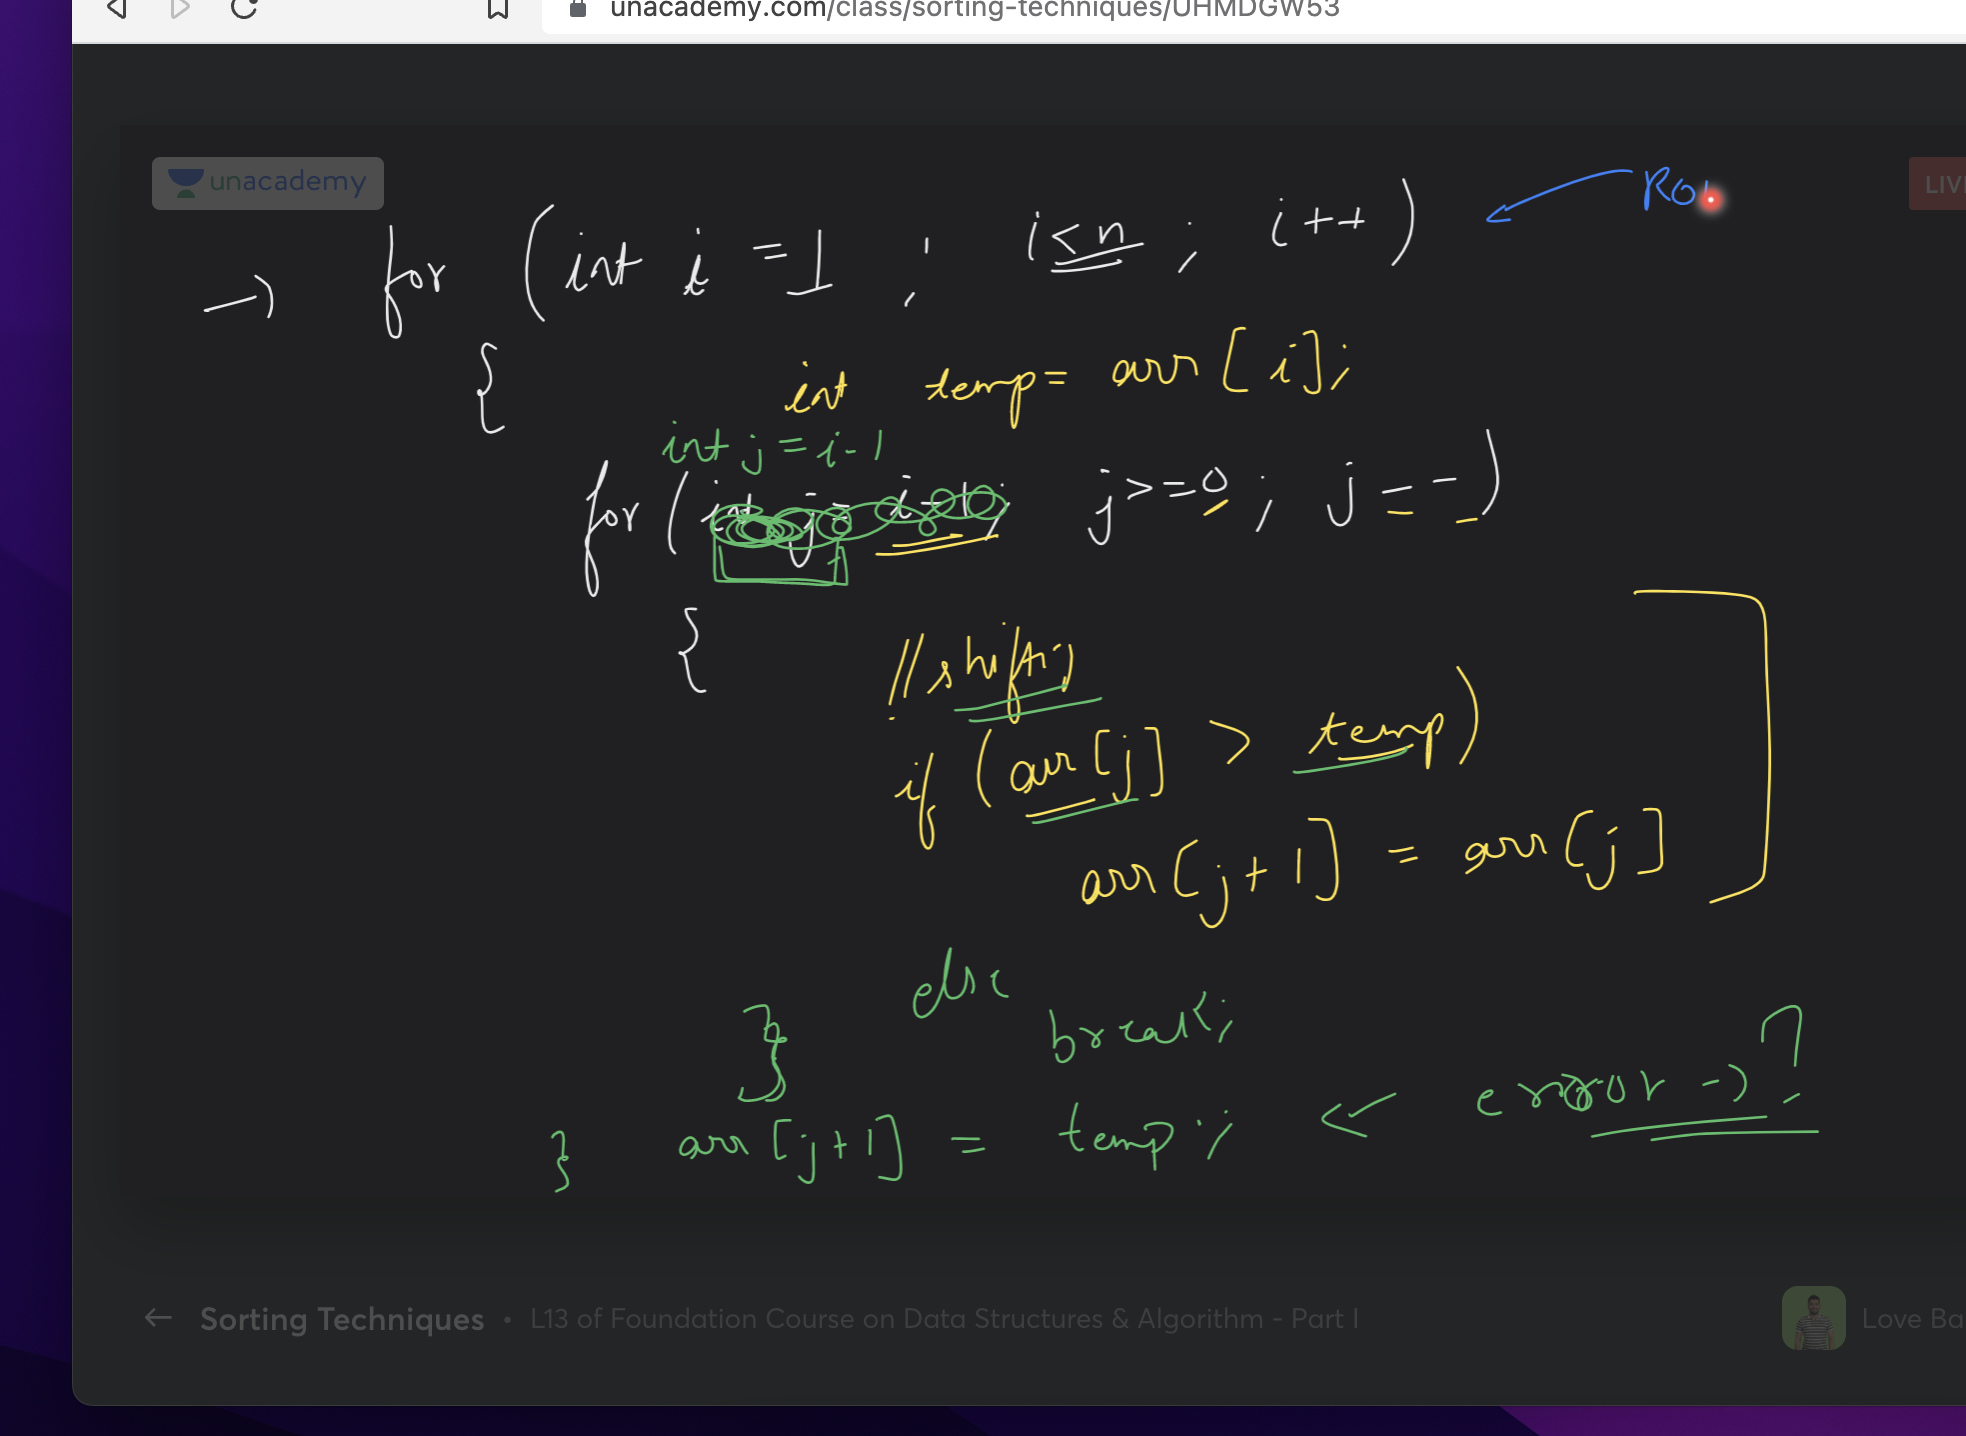 unacademy.com/class/sorting-techniques/UHMDGW53
unacademy
LIV
Ro
→ for (int i = 1 ; i < n ; i++)
{
int temp = arr[i];
int j = i-1
for (int j = i-1; j >= 0 ; j--)
{
// shift
if (arr[j] > temp)
arr[j+1] = arr[j]
else
break;
}
arr[j+1] = temp; ← error → ?
}
← Sorting Techniques • L13 of Foundation Course on Data Structures & Algorithm - Part I
Love Ba